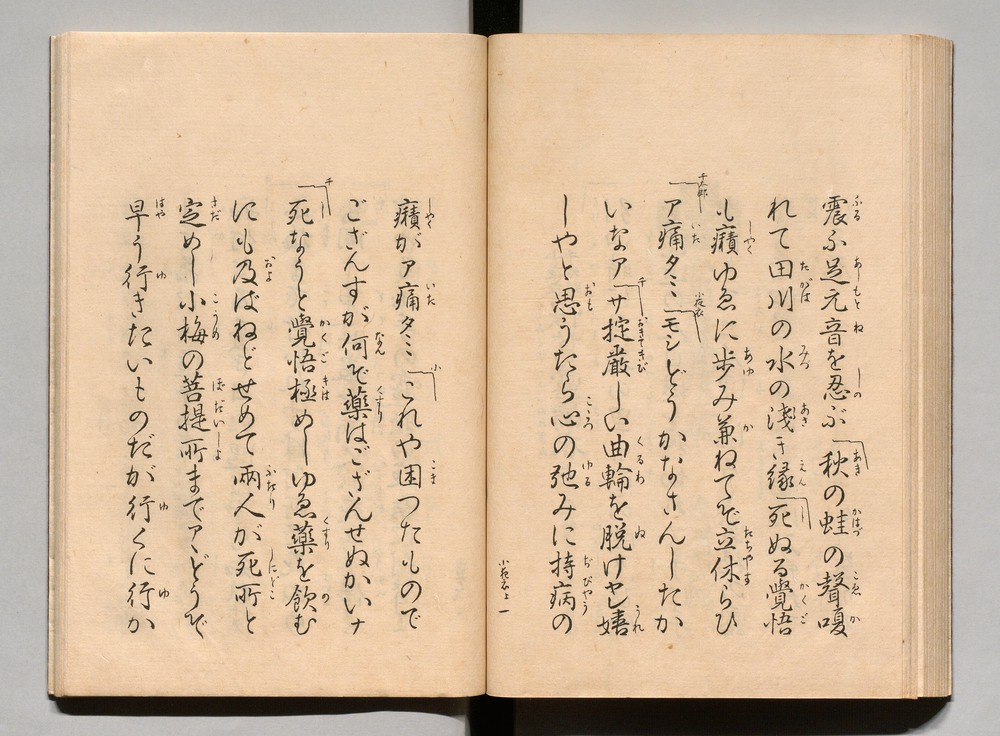 震ふ足元音を忍ぶ秋の蛙の聲嗄
れて田川の水の淺き縁死ぬる覺悟
も癪ゆゑに歩み兼ねてぞ立休らひ
千太郎
ア痛タミ
小夜衣
モシどうかなさんしたか
いなア
千
サ掟嚴しい曲輪を脱けヤレ嬉
しやと思うたら心の弛みに持病の
小夜衣上 一
癪がア痛タミ
小
これや困つたもので
ござんすが何ぞ藥はござんせぬかいナ
千
死なうと覺悟極めしゆゑ藥を飲む
にも及ばねどせめて兩人が死所と
定めし小梅の菩提所までアヽどうぞ
早う行きたいものだが行くに行か